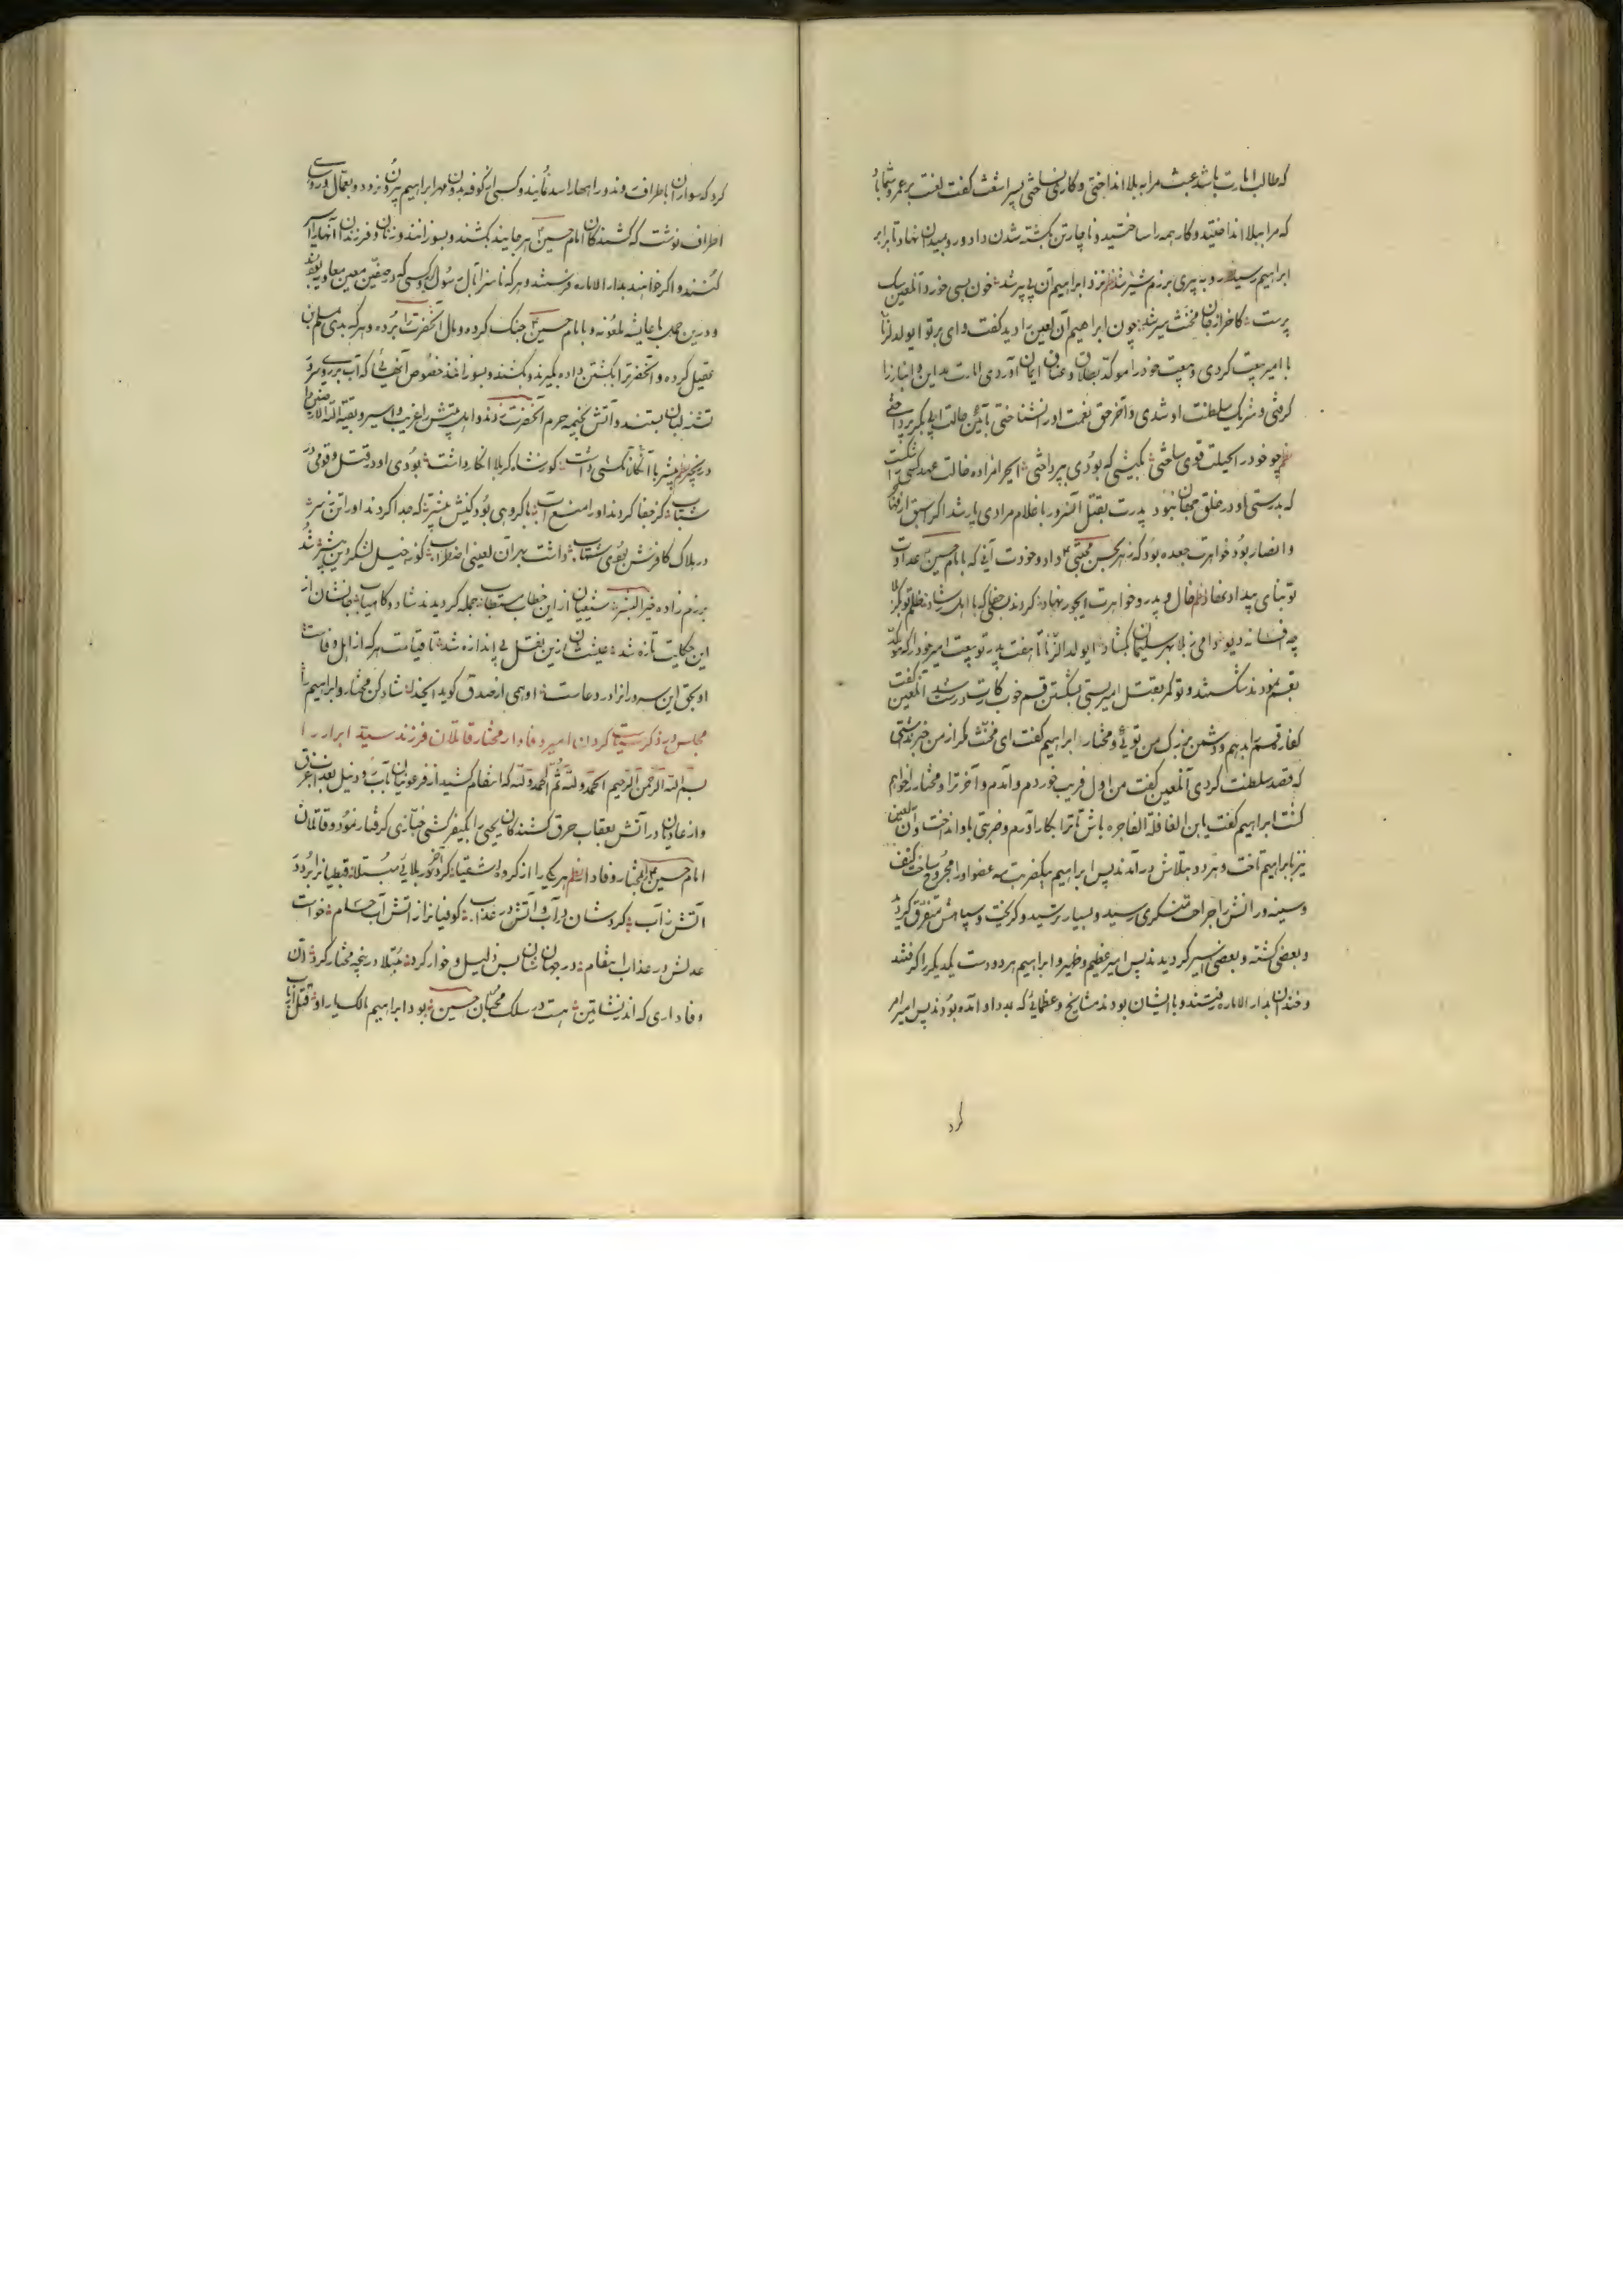 که طالب امارت باشد عبث مرا به بلا انداختی و کار ساختی پس اشعث گفت لعنت بر عمر و شما باد
که مرا ببلا انداختید و کار همه را ساختید و ناچار تن بکشته شدن داد و رو بمیدان نهاد تا برابر
ابراهیم رسید رو به پیری برزم شیر شد نزد ابراهیم آن بی پیر شد خون بسی خورد آن لعین سک
پرست کاخر از جان مخنث سیر شد چون ابراهیم آن لعین را دید گفت وای بر تو ای ولد الزنا
با امیر بیعت کردی و بیعت خود را موکد و ایمان آوردی امارت مداین و انبار را
گرفتی و شریک سلطنت او شدی و آخر حق نعمت او را نشناختی
چو خود را بحیلت قوی ساختی بکیشی که بودی بپرداختی ای حرامزاده خالت عهد شکست
که بدرستی او در خلق جهان نبود پدرت بقتل آنسرور با غلام مرادی یار شد
و انصار بود خواهرت جعده بود که زهر بحسن مجتبی داد و خودت آنی که با امام حسین عداوت
تو بنای بیداد خال و پدر و خواهرت ای جور نهاد کردند جفائی که با
چه فسانه دیو سلیمان بکشاد ای ولد الزنا تا هفت پدر تو بیعت امیر خود را که موکد
بقسم نمودند شکستند و تو کمر بقتل امیر بستی بشکستن قسم خوب کارت درست شد آن لعین گفت
کفاره قسم را بدهم و دشمن بزرگ من توئی و مختار ابراهیم گفت ای مخنث مگر از من خبر نداشتی
که قصد سلطنت کردی آن لعین گفت من اول فریب خوردم و آمدم و آخر ترا و مختار را خواهم
کشت ابراهیم گفت یا ابن الغافلة الفاجره باش تا ترا بکار آورم و ضربتی باو انداخت و آن لعین
نیز بابراهیم تاخت و هر دو بتلاش درآمدند پس ابراهیم بیکضربت سه عضو او را مجروح ساخت کتف
و سینه و رانش را جراحت منکری رسید و بسیار ترسید و گریخت و سپاهش متفرق گردید
و بعضی کشته و بعضی اسیر گردیدند پس امیر عظیم و ظهیر و ابراهیم هر دو دست یکدیگر را گرفتند
و خندان بدار الاماره رفتند و با ایشان بودند مشایخ و عظمائی که بمدد او آمده بودند پس امیر امر
کرد
کرد که سواران باطراف روند و راهها را سد نمایند و کسی از کوفه بدون مهر ابراهیم بیرون نرود و بعمال و روسای
اطراف نوشت که کشندگان امام حسین هر جا یابند بکشند و بسوزانند و زنان و فرزندان آنها را اسیر
کنند و اگر خواهند بدار الاماره فرستند و هر که ناسزا بآل رسول و کسی که در صفین معین معاویه بوده
و در جمل با عایشه ملعونه و با امام حسین جنگ کرده و مال آنحضرت را برده و هر که بدی بمسلم بن
عقیل کرده و آنحضرت را بکشتن داده بگیرند و بکشند و بسوزانند خصوص آنهائی که آب بر روی
تشنه لبان بستند و آتش بخیمه حرم آنحضرت زدند و اهل بیتش را غریب و اسیر و
در پنجه بیشتر با آنکسان کشتی داشت کو رتشاه کربلا انکار داشت بودی او در قتل و قومی در
شتاب کز جفا کردند او را منع آب با گروهی بود کینش بیشتر که جدا کردند او را تن ز سر
در هلاک کافرش بودی شتاب داشت بهر آن لعینی اضطراب کو ز خیل لشکر دین بیشتر شد
برزم زاده خیر البشر شیعیان از این خطاب مستطاب جمله گردیدند شاد و کامیاب جانشان از
این حکایت تازه شد عیششان زین قتل بی اندازه شد تا قیامت هر که از اهل وفاست
او بحق این سرور را در دعاست او همی از صدق گوید ای خدا شاد کن مختار و ابراهیم را
مجلس در ذکر سیاست کردن امیر وفادار مختار قاتلان فرزند سید ابرار را
بسم الله الرحمن الرحیم الحمد لله ثم الحمد لله که انتقام کشید از فرعونیان بآب رود نیل بعذاب غرق
و از عادیان در آتش بعقاب حرق کشندگان یحیی را بکیفر کشی گرفتار نمود و قاتلان
امام حسین را بمختار وفادار هر یک را از گروه اشقیا کرد آخر در بلائی مبتلا قبطیان را برد در
آتش ز آب کردشان در آب و آتش در عذاب کوفیان را از آتش آب حسام خواست
عدلش در عذاب انتقام در جهان شان بس ذلیل و خوار کرد مبتلا در پنجه مختار کرد آن
وفاداری که اندر نشأتین هست در سلک محبان حسین بود ابراهیم مالک یار او